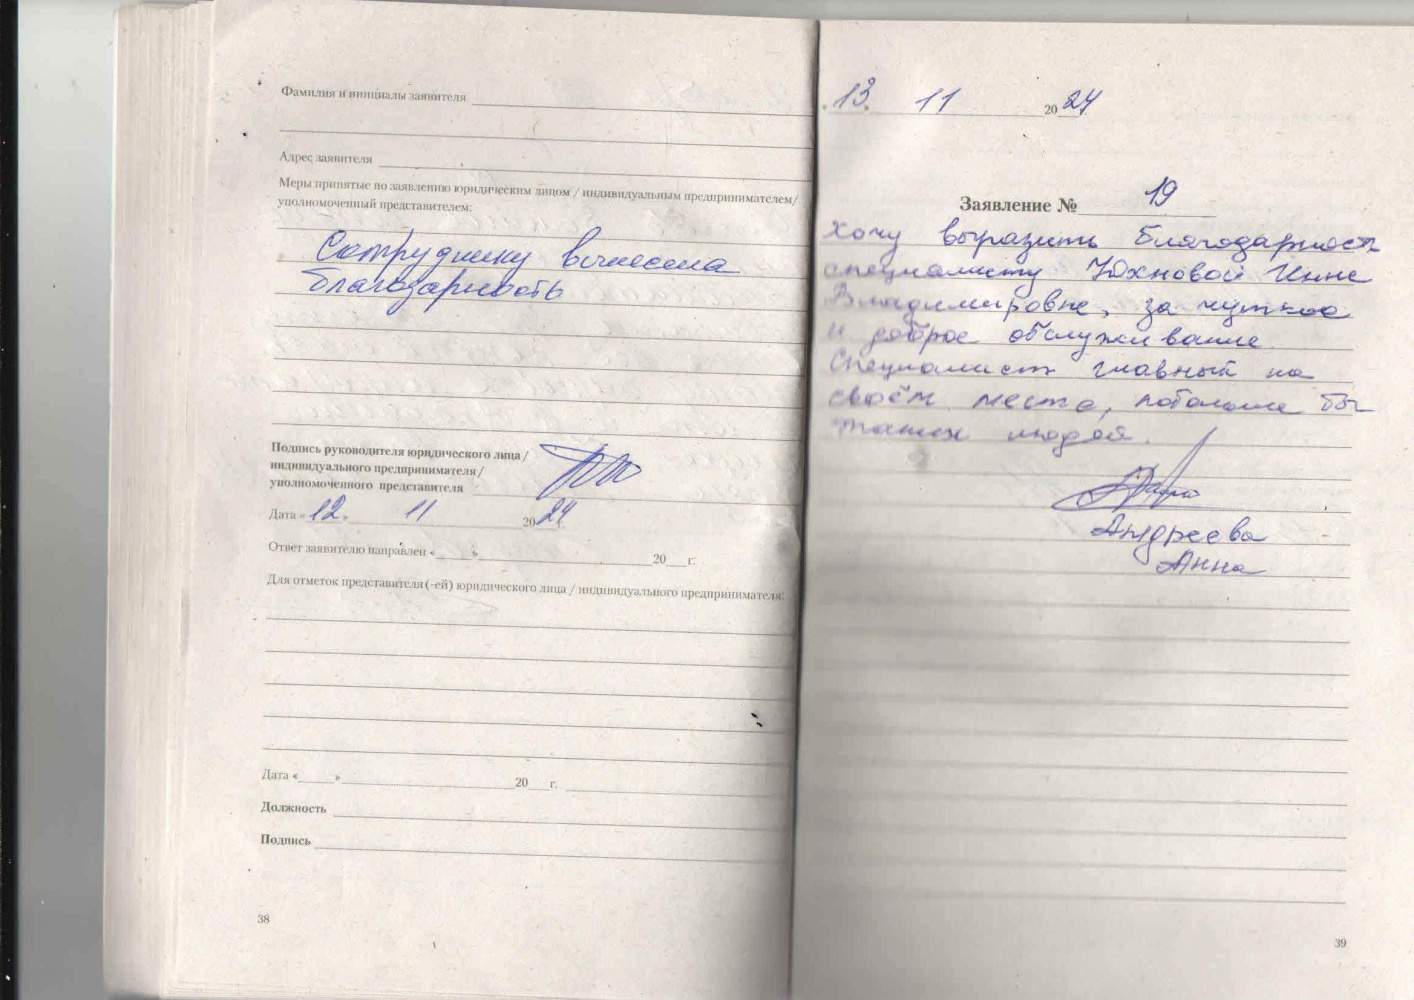 Фамилия и инициалы заявителя
Адрес заявителя
Меры принятые по заявлению юридическим лицом / индивидуальным предпринимателем/
уполномоченный представителем:
Сотруднику вынесена
благодарность
Подпись руководителя юридического лица /
индивидуального предпринимателя /
уполномоченного представителя
Дата «12» 11 2024
Ответ заявителю направлен «____»____ 20___г.
Для отметок представителя (-ей) юридического лица / индивидуального предпринимателя:
Дата «____»____ 20___г.
Должность
Подпись
38
13. 11 2024
Заявление № 19
Хочу выразить благодарность
специалисту Юхновой Инне
Владимировне, за чуткое
и доброе обслуживание.
Специалист главный на
своём месте, побольше бы
таких людей.
Андреева
Анна
39